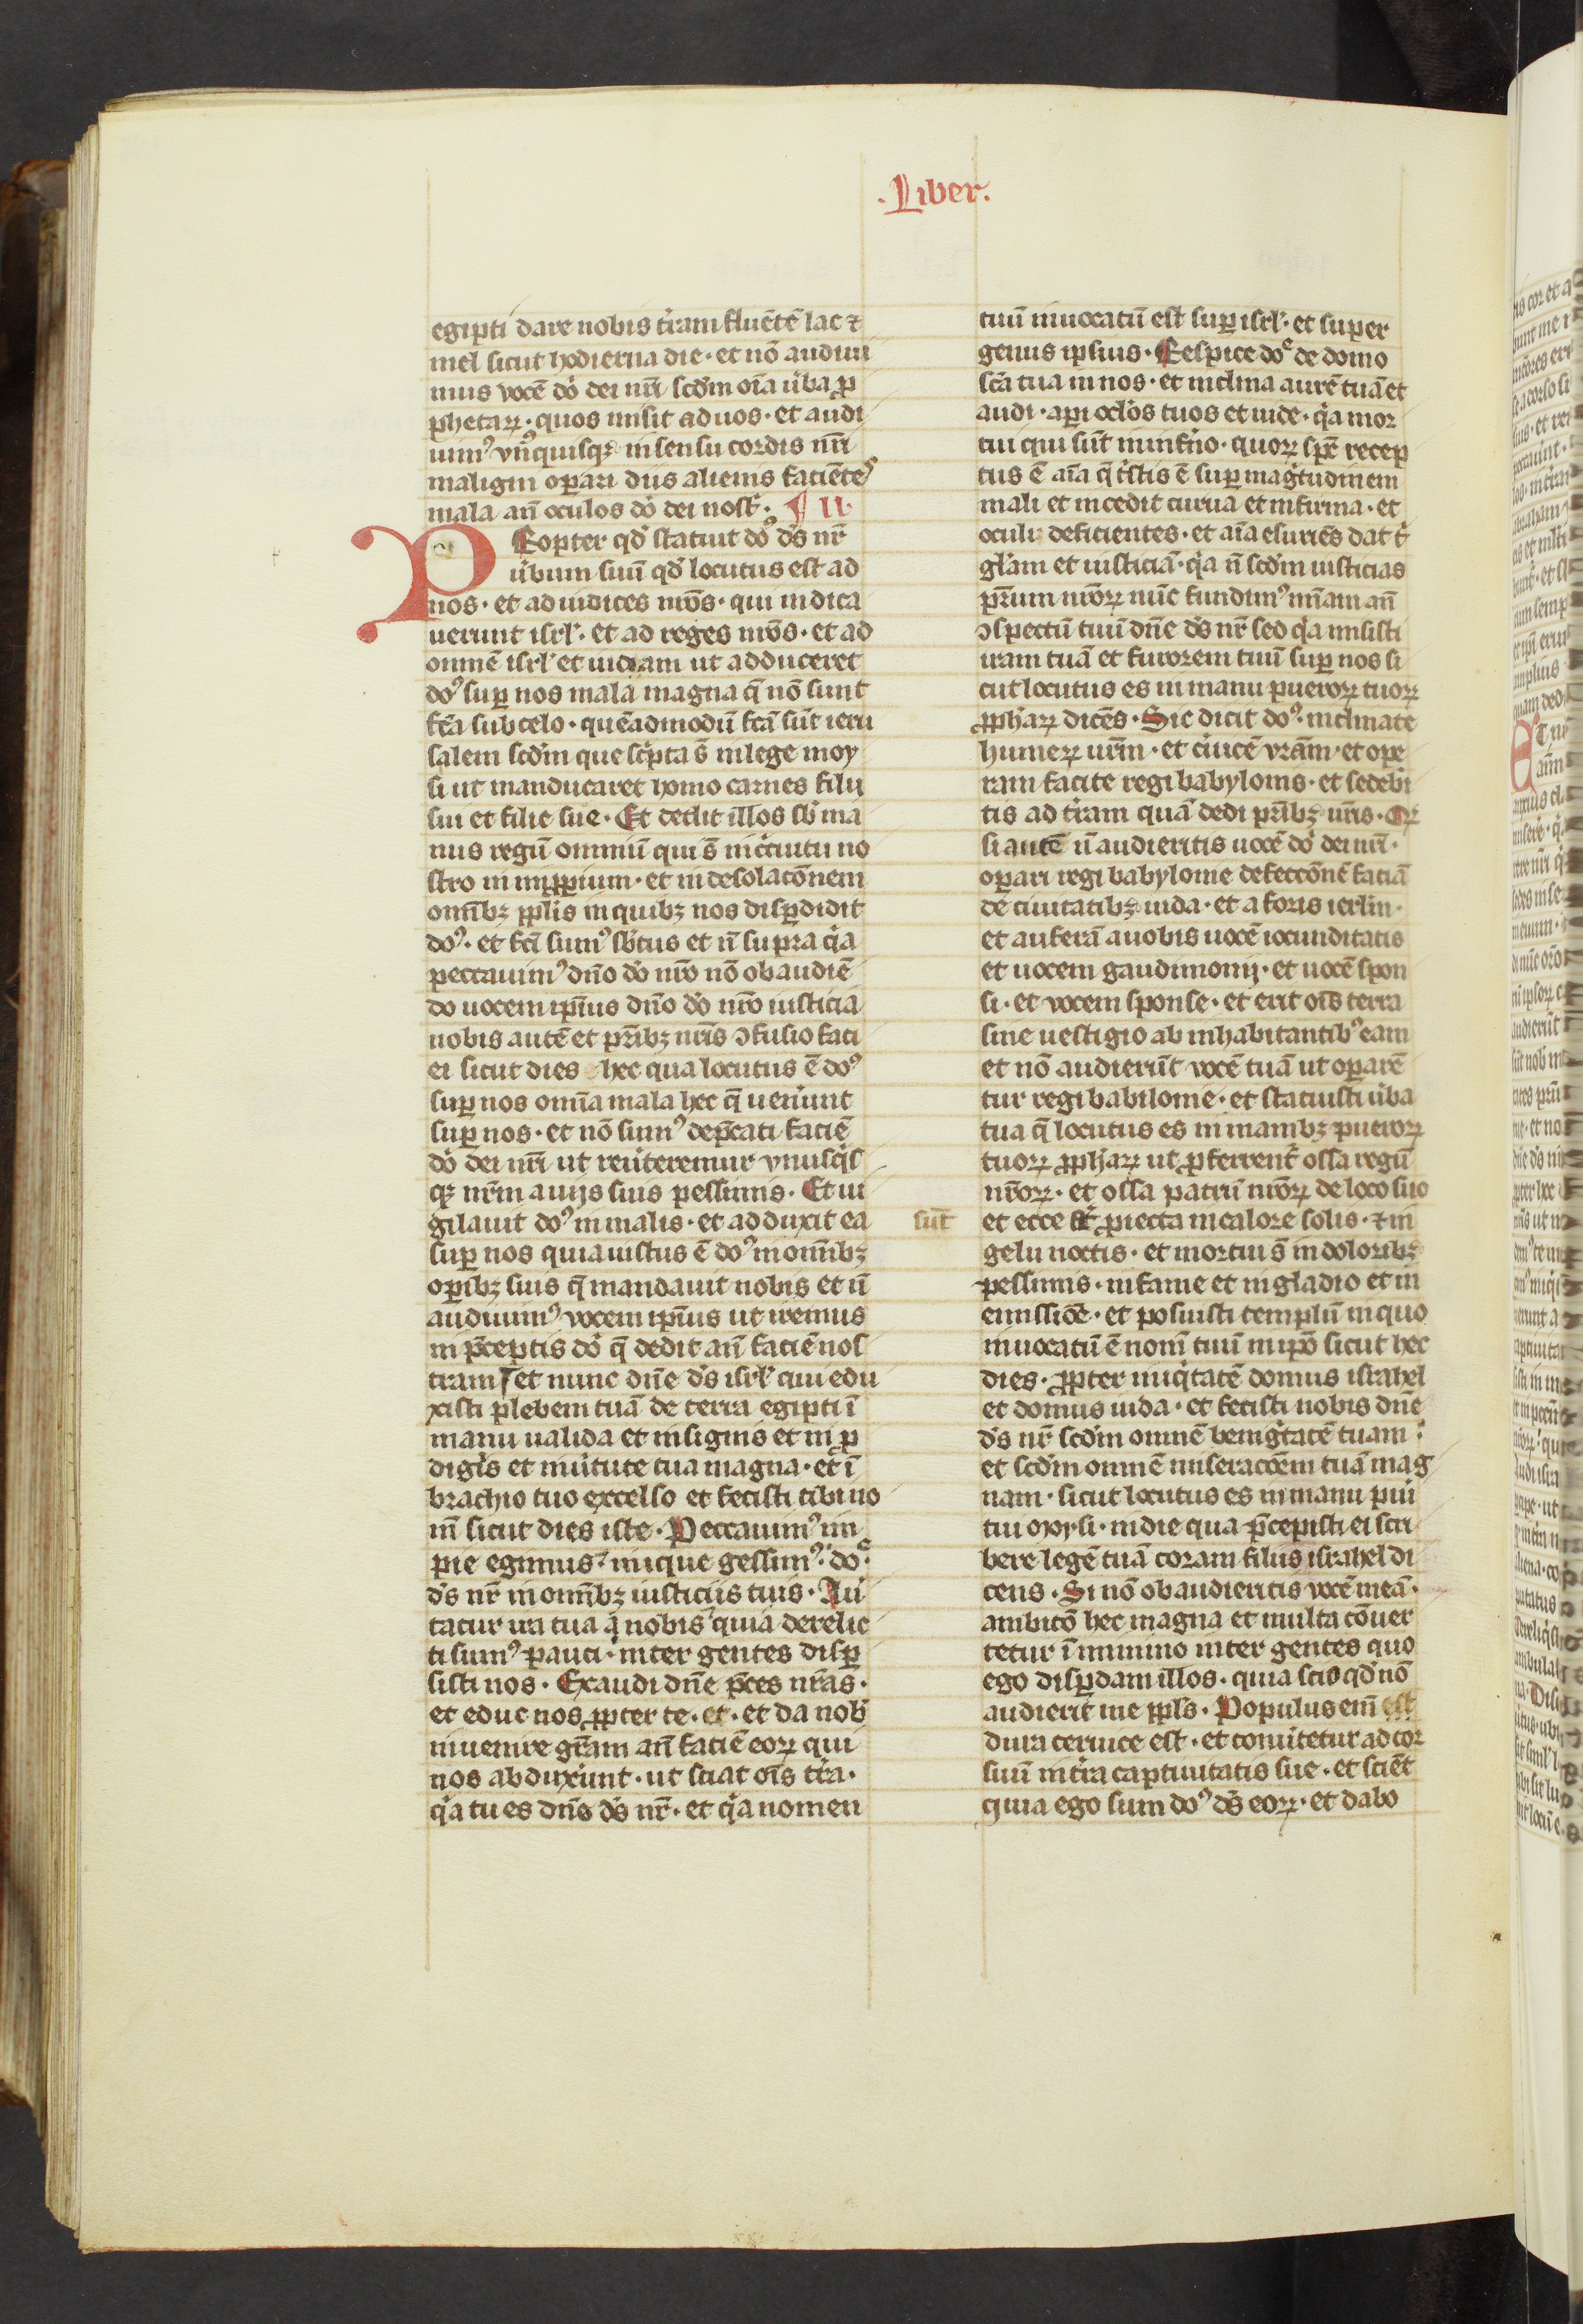 .Liber.
egipti dare nobis t̾ram fluētē lac ⁊
mel sicut hodierna die · et nō audiui
mus vocē dō dei nr̄i scd̾m oīa ūba ꝓ
phetaꝝ · quos misit ad uos · et audi
uimꝰ vn̾quisqꝫ in sensu cordis nr̄i
maligni oꝑari diis alienis faciēteˢ
mala an̄ oculos dō dei nosť · ¶ II ·
PRopter qd̾ statuit doꝰ ds̄ nr̄
ūbum suū qd̾ locutus est ad
nos · et ad iudices nr̄os · qui iudica
uerunt isrl̾ · et ad reges nr̄os · et ad
omnē isrl̾ et iudam ut adduceret
doꝰ suꝑ nos mala magna q̄ nō sunt
fcā sub celo · quēadmodū fcā sūt ieru
salem scd̾m que sc̾pta s̄ in lege moy
si ut manducaret homo carnes filii
sui et filie sue · Et dedit illos sb̾ ma
nus regū omniū qui s̄ in c̾cuitu no
stro in inꝓꝑium · et in desolacōnem
omībꝫ ppl̾is in quibꝫ nos disꝑdidit
doꝰ · et fcī sumꝰ sb̾tus et n̄ supra q̾a
peccauimꝰ dn̄o dō nr̄o nō obaudiē
do uocem ipīus dn̄o dō nr̄o iusticia
nobis autē et pr̄ibꝫ nr̄is ↄfusio faci
ei sicut dies hec qua locutus ē doꝰ
suꝑ nos omīa mala hec q̄ ueniunt
suꝑ nos · et nō sumꝰ dep̄cati faciē
dō dei nr̄i ut reūteremur vnusq̾s
qꝫ nr̄m a uijs suis pessimis · Et ui
gilauit doꝰ in malis · et adduxit ea
suꝑ nos quia iustus ē doꝰ in omībꝫ
oꝑibꝫ suis q̄ mandauit nobis et n̄
audiuimꝰ vocem ipīus ut iremus
in p̄ceptis dō q̄ dedit an̄ faciē nos
tram et nunc dn̄e ds̄ isrl̾ qui edu
xisti plebem tuā de terra egipti ī
manu ualida et in signis et in ꝓ
digi̾s et in ūtute tua magna · et ī
brachio tuo excelso et fecisti tibi no
m̄ sicut dies iste · Peccauimꝰ im
pie egimus inique gessimꝰ doᵉ
ds̄ nr̄ in omībꝫ iusticiis tuis · Au̾
tatur ira tua a nobis quia derelic
ti sumꝰ pauci · inter gentes disꝑ
sisti nos · Exaudi dn̄e p̄ces nr̄as ·
et educ nos ꝓpter te · et · et da nob̾
inuenire gr̄am an̄ faciē eoꝝ qui
nos abduxeřunt · ut sciat oīs t̾ra ·
q̾a tu es dn̄s ds̄ nr̄ · et q̾a nomen
tuū inuocatū est suꝑ isrl̾ · et super
genus ipsius · Respice doᵉ de domo
scā tua in nos · et inclina aurē tuā et
audi · aꝑi ocl̾os tuos et uide · q̾a mor
tui qui sūt in inf̾no · quoꝝ spē recep
tus ē aīa q̄ t̾stis ē suꝑ mag̾tudinem
mali et incedit curua et infirma · et
oculi deficientes · et aīa esuriēs dat t̾
gl̾am et iusticiā · q̾a n̄ scd̾m iusticias
pr̄um nr̄oꝝ nūc fundimꝰ mīam an̄
ↄspectū tuū dn̄e ds̄ nr̄ sed q̾a misisti
iram tuā et furorem tuū suꝑ nos si
cut locutus es in manu pueroꝝ tuoꝝ
ꝓph̾aꝝ dicēs · Sic dicit doꝰ · inclinate
humeꝝ ur̄m · et c̾uicē vr̄am · et ope
ram facite regi babylonis · et sedebi
tis ad t̾ram quā dedi pr̄ibꝫ ur̄is · Qꝝ
si autē n̄ audieritis uocē dō dei nr̄i ·
oꝑari regi babylonie defeccōnē faciā
de ciuitatibꝫ iuda · et a foris ierl̄m ·
et auferā a uobis uocē iocunditatis
et uocem gaudimonij · et uocē spon
si · et vocem sponse · et erit oīs terra
sine uestigio ab inhabitantibꝰ eam
et nō audierūt vocē tuā ut oꝑarē
tur regi babilonie · et statuisti ūba
tua q̄ locutus es in manibꝫ pueroꝝ
tuoꝝ ꝓph̾aꝝ ut ꝓferrent̾ ossa regū
nr̄oꝝ · et ossa patrū nr̄oꝝ de loco suo
sūt
et ecce ꝓiecta in calore solis · ⁊ in
gelu noctis · et mortui s̄ in doloribꝫ
pessimis · in fame et in gladio et in
emissiōe · et posuisti templū in quo
inuocatū ē nom̄ tuū in ip̄o sicut hec
dies · ꝓpter iniq̾tatē domus israhel
et domus iuda · et fecisti nobis dn̄e
ds̄ nr̄ scd̾m omnē benig̾tatē tuam ·
et scd̾m omnē miseracōem tuā mag
nam · sicut locutus es in manu pūi
tui moysi · in die qua p̄cepisti ei scri
bere legē tuā coram filiis israhel di
cens · Si nō obaudieritis vocē meā ·
ambitō hec magna et multa cōuer
tetur ī minimo inter gentes quo
ego disꝑdam illos · quia scio qd̾ nō
audierit me ppl̾s · Populus em̄ est
dura ceruice est · et conūtetur ad cor
suū in t̾ra captiuitatis sue · et sciēt
quia ego sum doꝰ ds̄ eoꝝ · et dabo